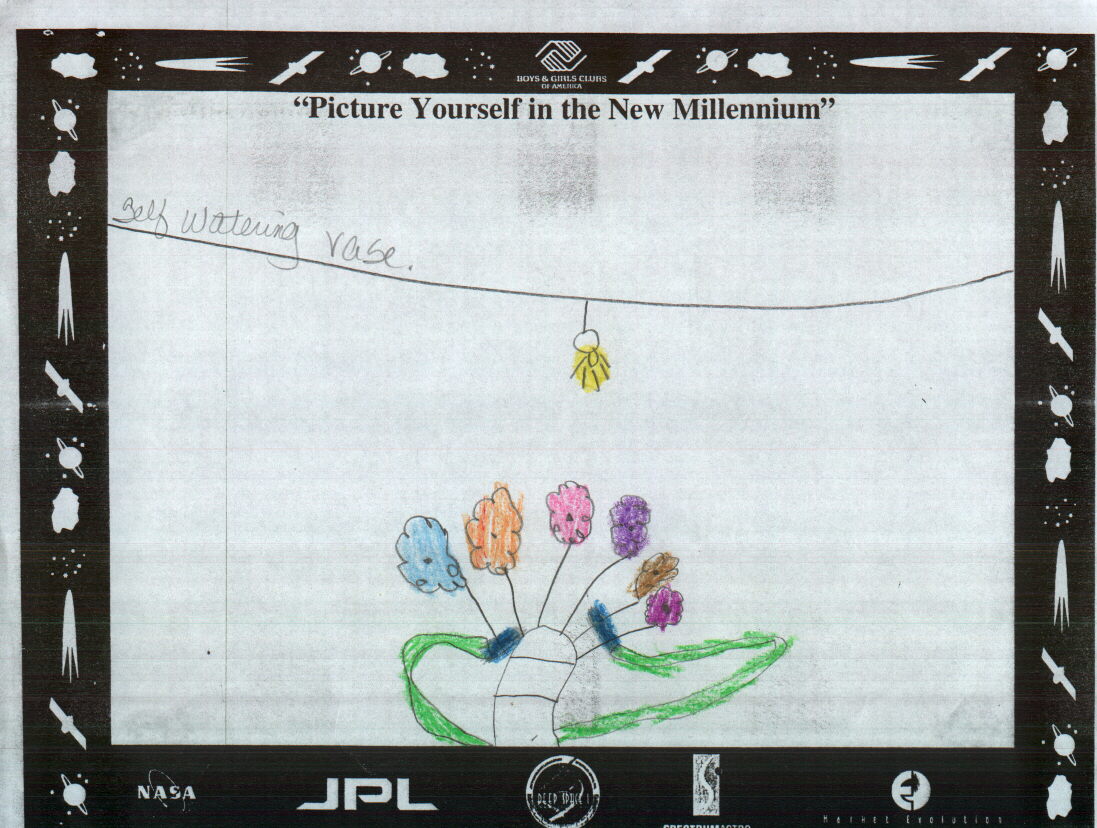 BOYS & GIRLS CLUBS
OF AMERICA
“Picture Yourself in the New Millennium”
Self Watering Vase.
NASA
JPL
DEEP SPACE 1
SPECTRUMASTRO
Market Evolution